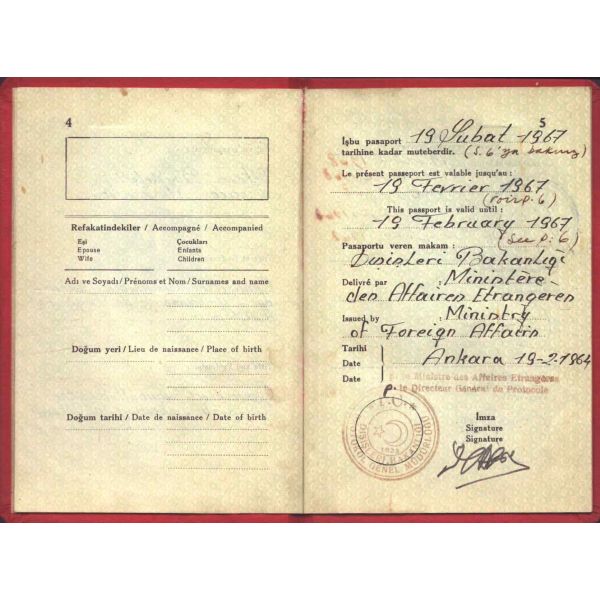 4
Refakatindekiler / Accompagné / Accompanied
Eşi Çocukları
Epouse Enfants
Wife Children
Adı ve Soyadı / Prénoms et Nom / Surnames and name
Doğum yeri / Lieu de naissance / Place of birth
Doğum tarihi / Date de naissance / Date of birth
5
İşbu pasaport 19 Şubat 1967
tarihine kadar muteberdir. (S. 6'ya bakınız)
Le présent passeport est valable jusqu'au :
19 Fevrier 1967
(voir p. 6)
This passport is valid until :
19 February 1967
(see p. 6)
Pasaportu veren makam :
Dışişleri Bakanlığı
Delivré par : Ministère
des Affaires Etrangères
Issued by : Ministry
of Foreign Affairs
Tarihi
Date Ankara 19-2-1964
Date
Ministre des Affaires Etrangères
p. le Directeur Général du Protocole
T.C.
DIŞİŞLERİ BAKANLIĞI
PROTOKOL GENEL MÜDÜRLÜĞÜ
1923
İmza
Signature
Signature